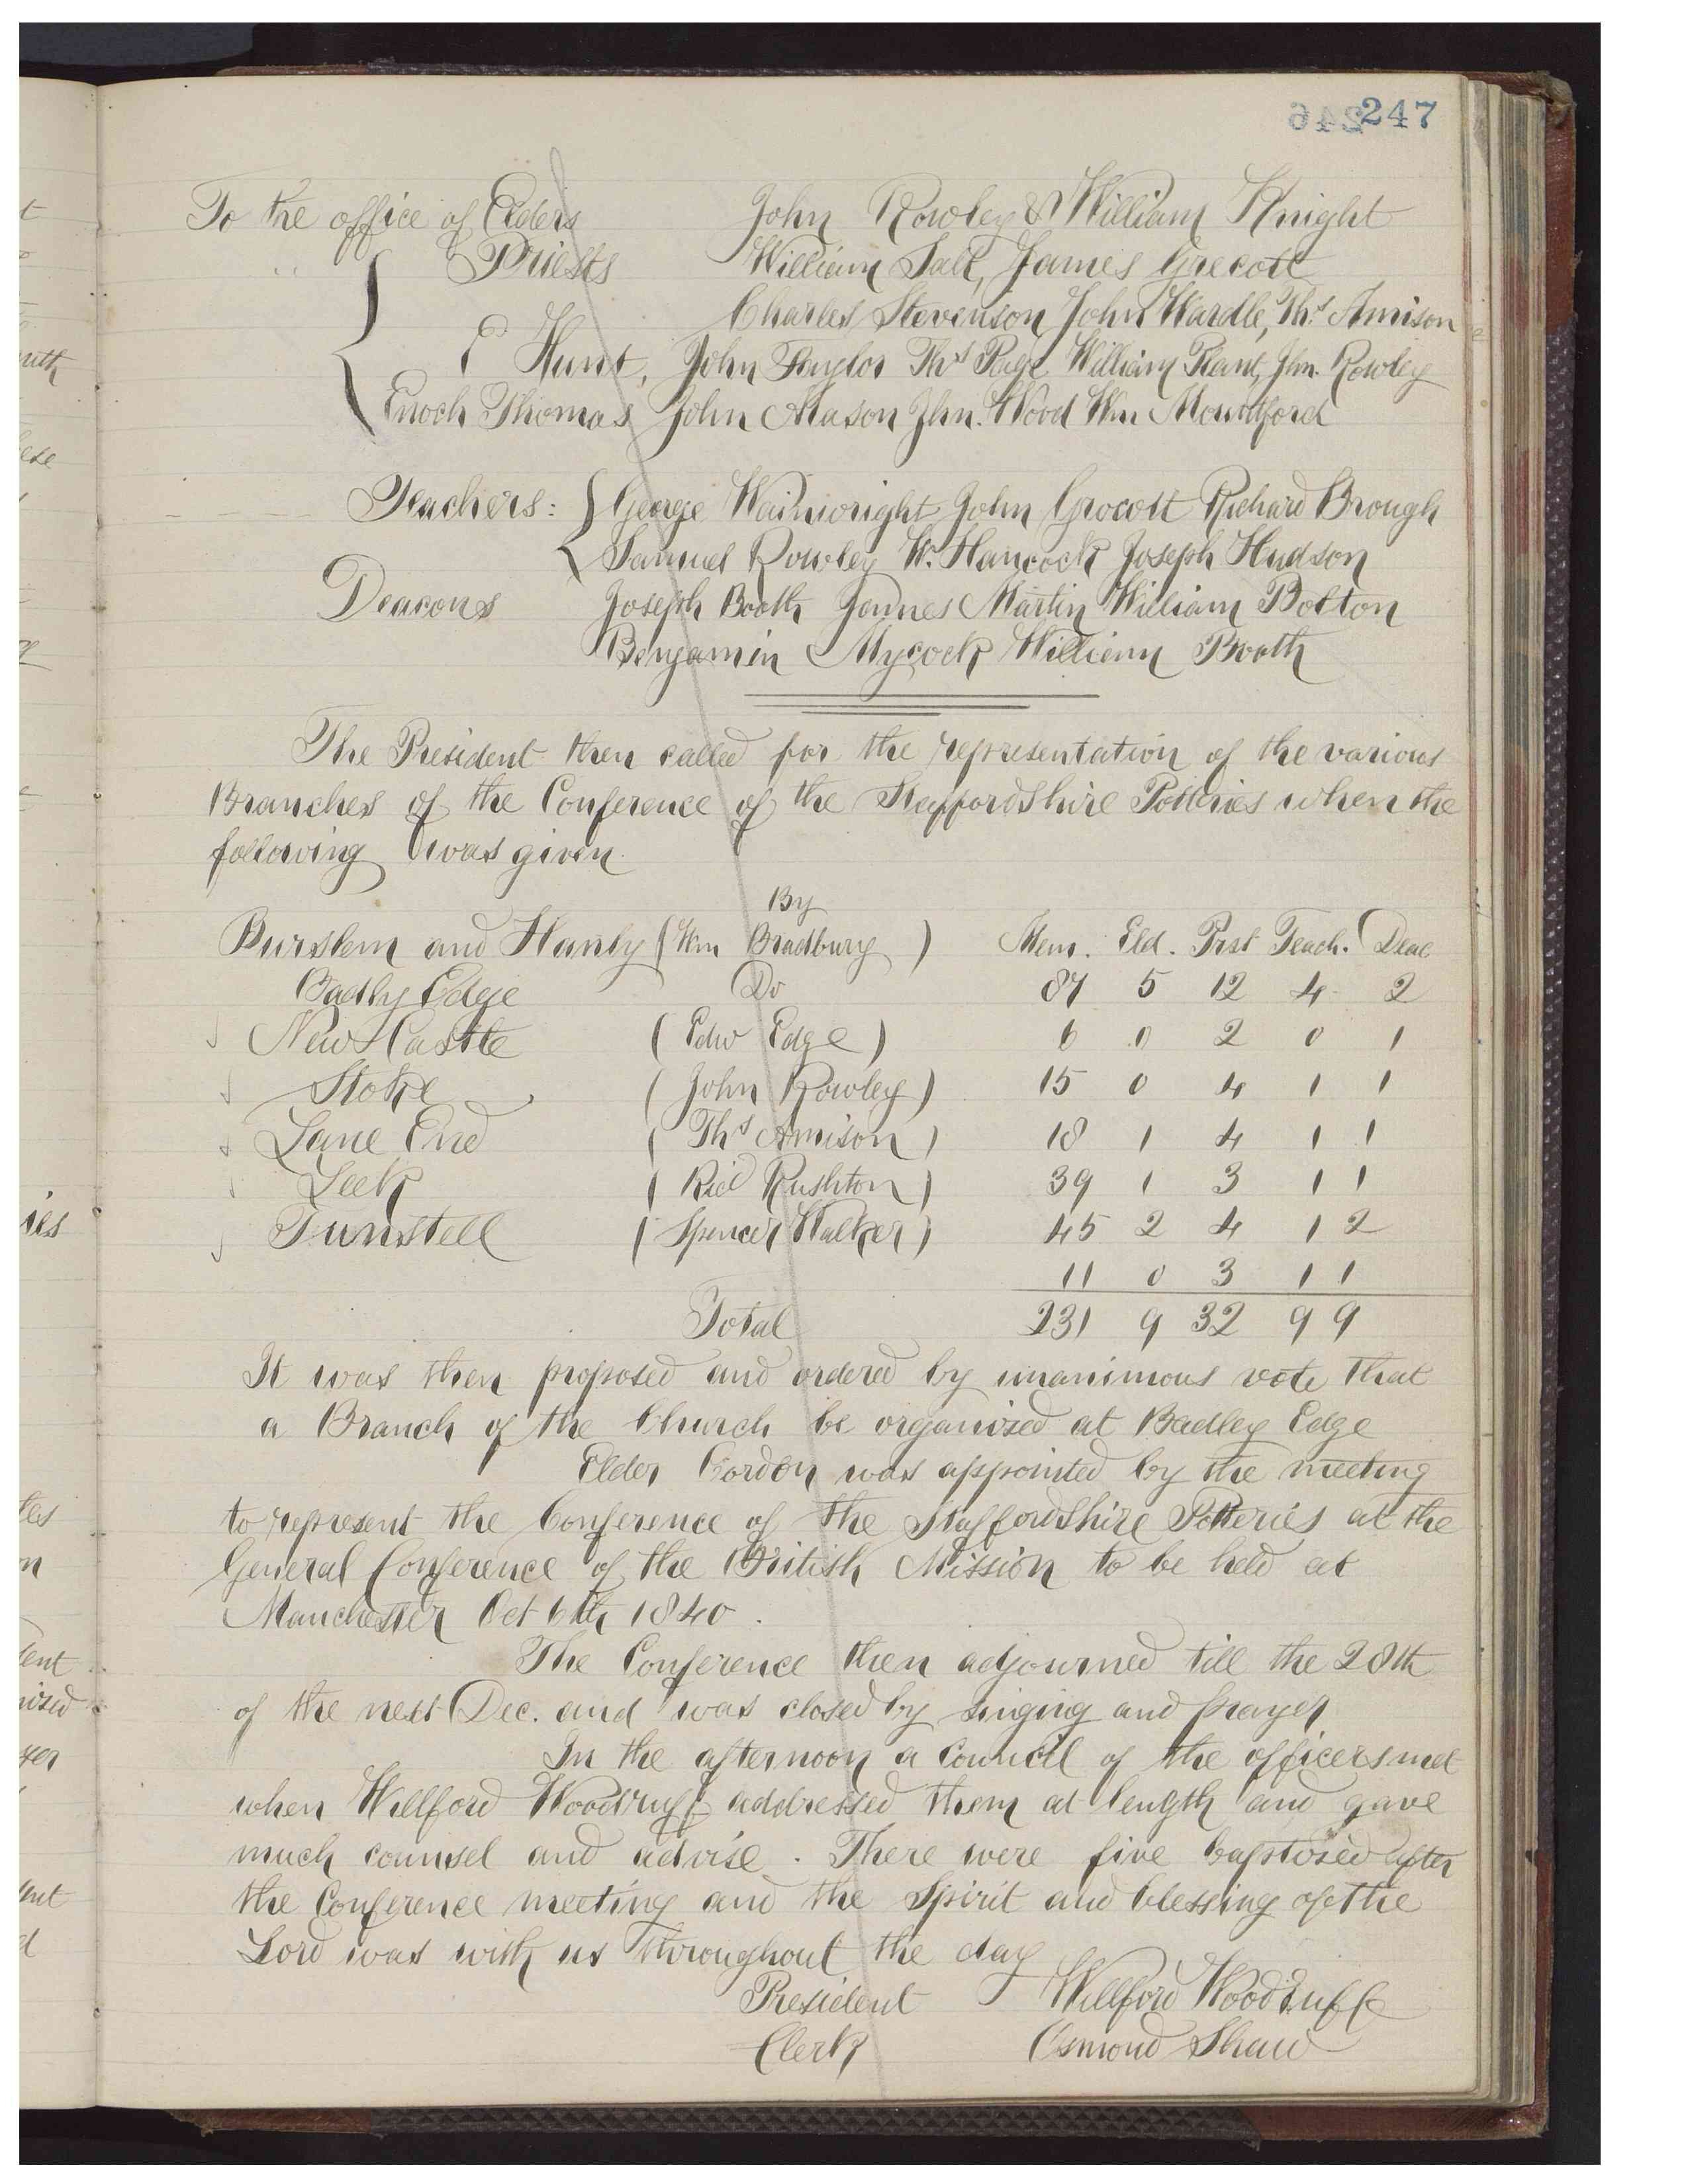 247
To the office of Elders John Rowley & William Knight
" Priests William Salt, James Grecott
Charles Stevenson John Wardle, Ths Amison
E Hunt, John Taylor Ths Page William Plant, Jhn. Rowley
Enoch Thomas John Mason Jhn. Wood Wm Mountford
Teachers: George Wainwright John Grocott Richard Brough
Samuel Rowley W. Hancock Joseph Hudson
Deacons Joseph Booth James Martin William Bolton
Benjamin Mycock William Booth
The President then called for the representation of the various
Branches of the Conference of the Staffordshire Potteries when the
following was given
By
Burslem and Hanly (Wm Bradbury) Mem. Eld. Prst Teach. Deac
Badly Edge Do 87 5 12 4 2
New Castle (Edw Edge) 6 0 2 0 1
Stoke (John Rowley) 15 0 4 1 1
Lane End (Ths Amison) 18 1 4 1 1
Leek (Ricd Rushton) 39 1 3 1 1
Tunstell (Spencer Walker) 45 2 4 1 2
11 0 3 1 1
Total 231 9 32 9 9
It was then proposed and ordered by unanimous vote that
a Branch of the Church be organised at Badley Edge
Elder Cordon was appointed by the meeting
to represent the Conference of the Staffordshire Potteries at the
General Conference of the British Mission to be held at
Manchester Oct 6th 1840.
The Conference then adjourned till the 28th
of the next Dec. and was closed by singing and prayer
In the afternoon a Council of the officers met
when Willford Woodruff addressed them at length and gave
much counsel and advise. There were five baptised after
the Conference meeting and the Spirit and blessing of the
Lord was with us throughout the day
President Willford Woodruffe
Clerk Osmond Shaw